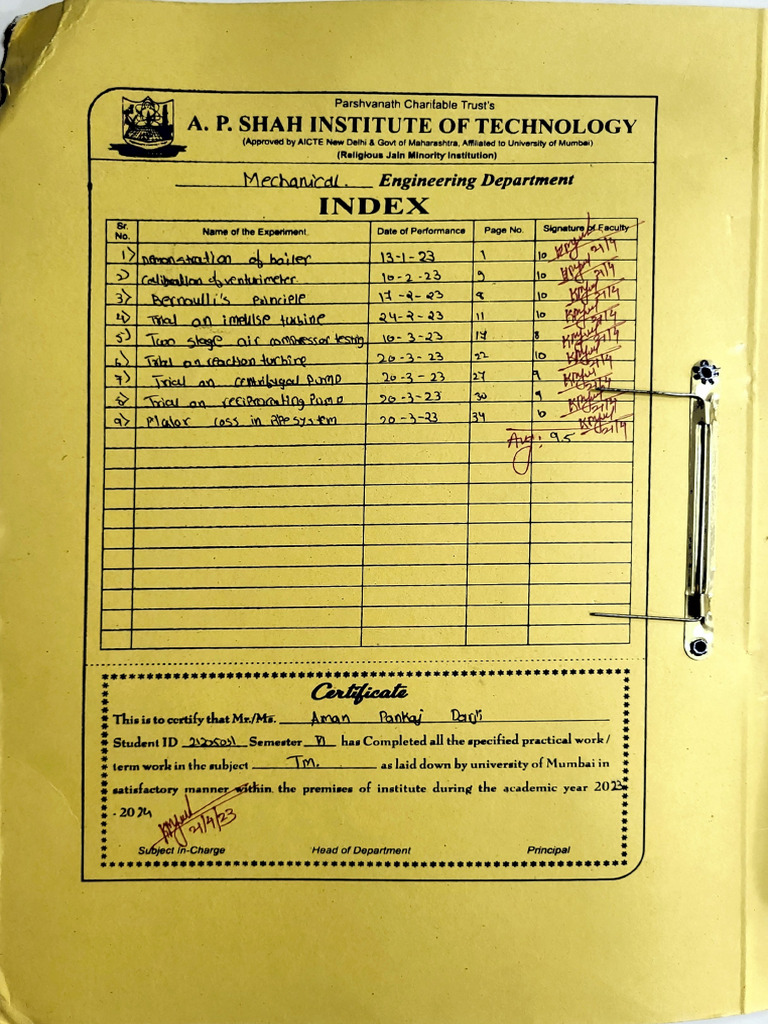 Parshvanath Charitable Trust's
A. P. SHAH INSTITUTE OF TECHNOLOGY
(Approved by AICTE New Delhi & Govt of Maharashtra, Affiliated to University of Mumbai)
(Religious Jain Minority Institution)
Mechanical. Engineering Department
INDEX
Sr. No. Name of the Experiment. Date of Performance Page No. Signature of Faculty
1) Demonstration of boiler 13-1-23 1 10 21/4
2) Calibration of venturimeter 10-2-23 5 10 21/4
3) Bernoulli's principle 17-2-23 8 10 21/4
4) Trial on impulse turbine 24-2-23 11 10 21/4
5) Two stage air compressor testing 10-3-23 17 8 21/4
6) Trial on reaction turbine 20-3-23 22 10 21/4
7) Trial on centrifugal pump 20-3-23 27 9 21/4
8) Trial on reciprocating pump 20-3-23 30 9 21/4
9) loss in pipe system 20-3-23 34 21/4
Avg: 9.5
Certificate
This is to certify that Mr./Ms. Aman Pankaj Darji
Student ID Semester has Completed all the specified practical work /
term work in the subject TM. as laid down by university of Mumbai in
satisfactory manner within the premises of institute during the academic year 2023
- 2024
21/4/23
Subject In-Charge Head of Department Principal